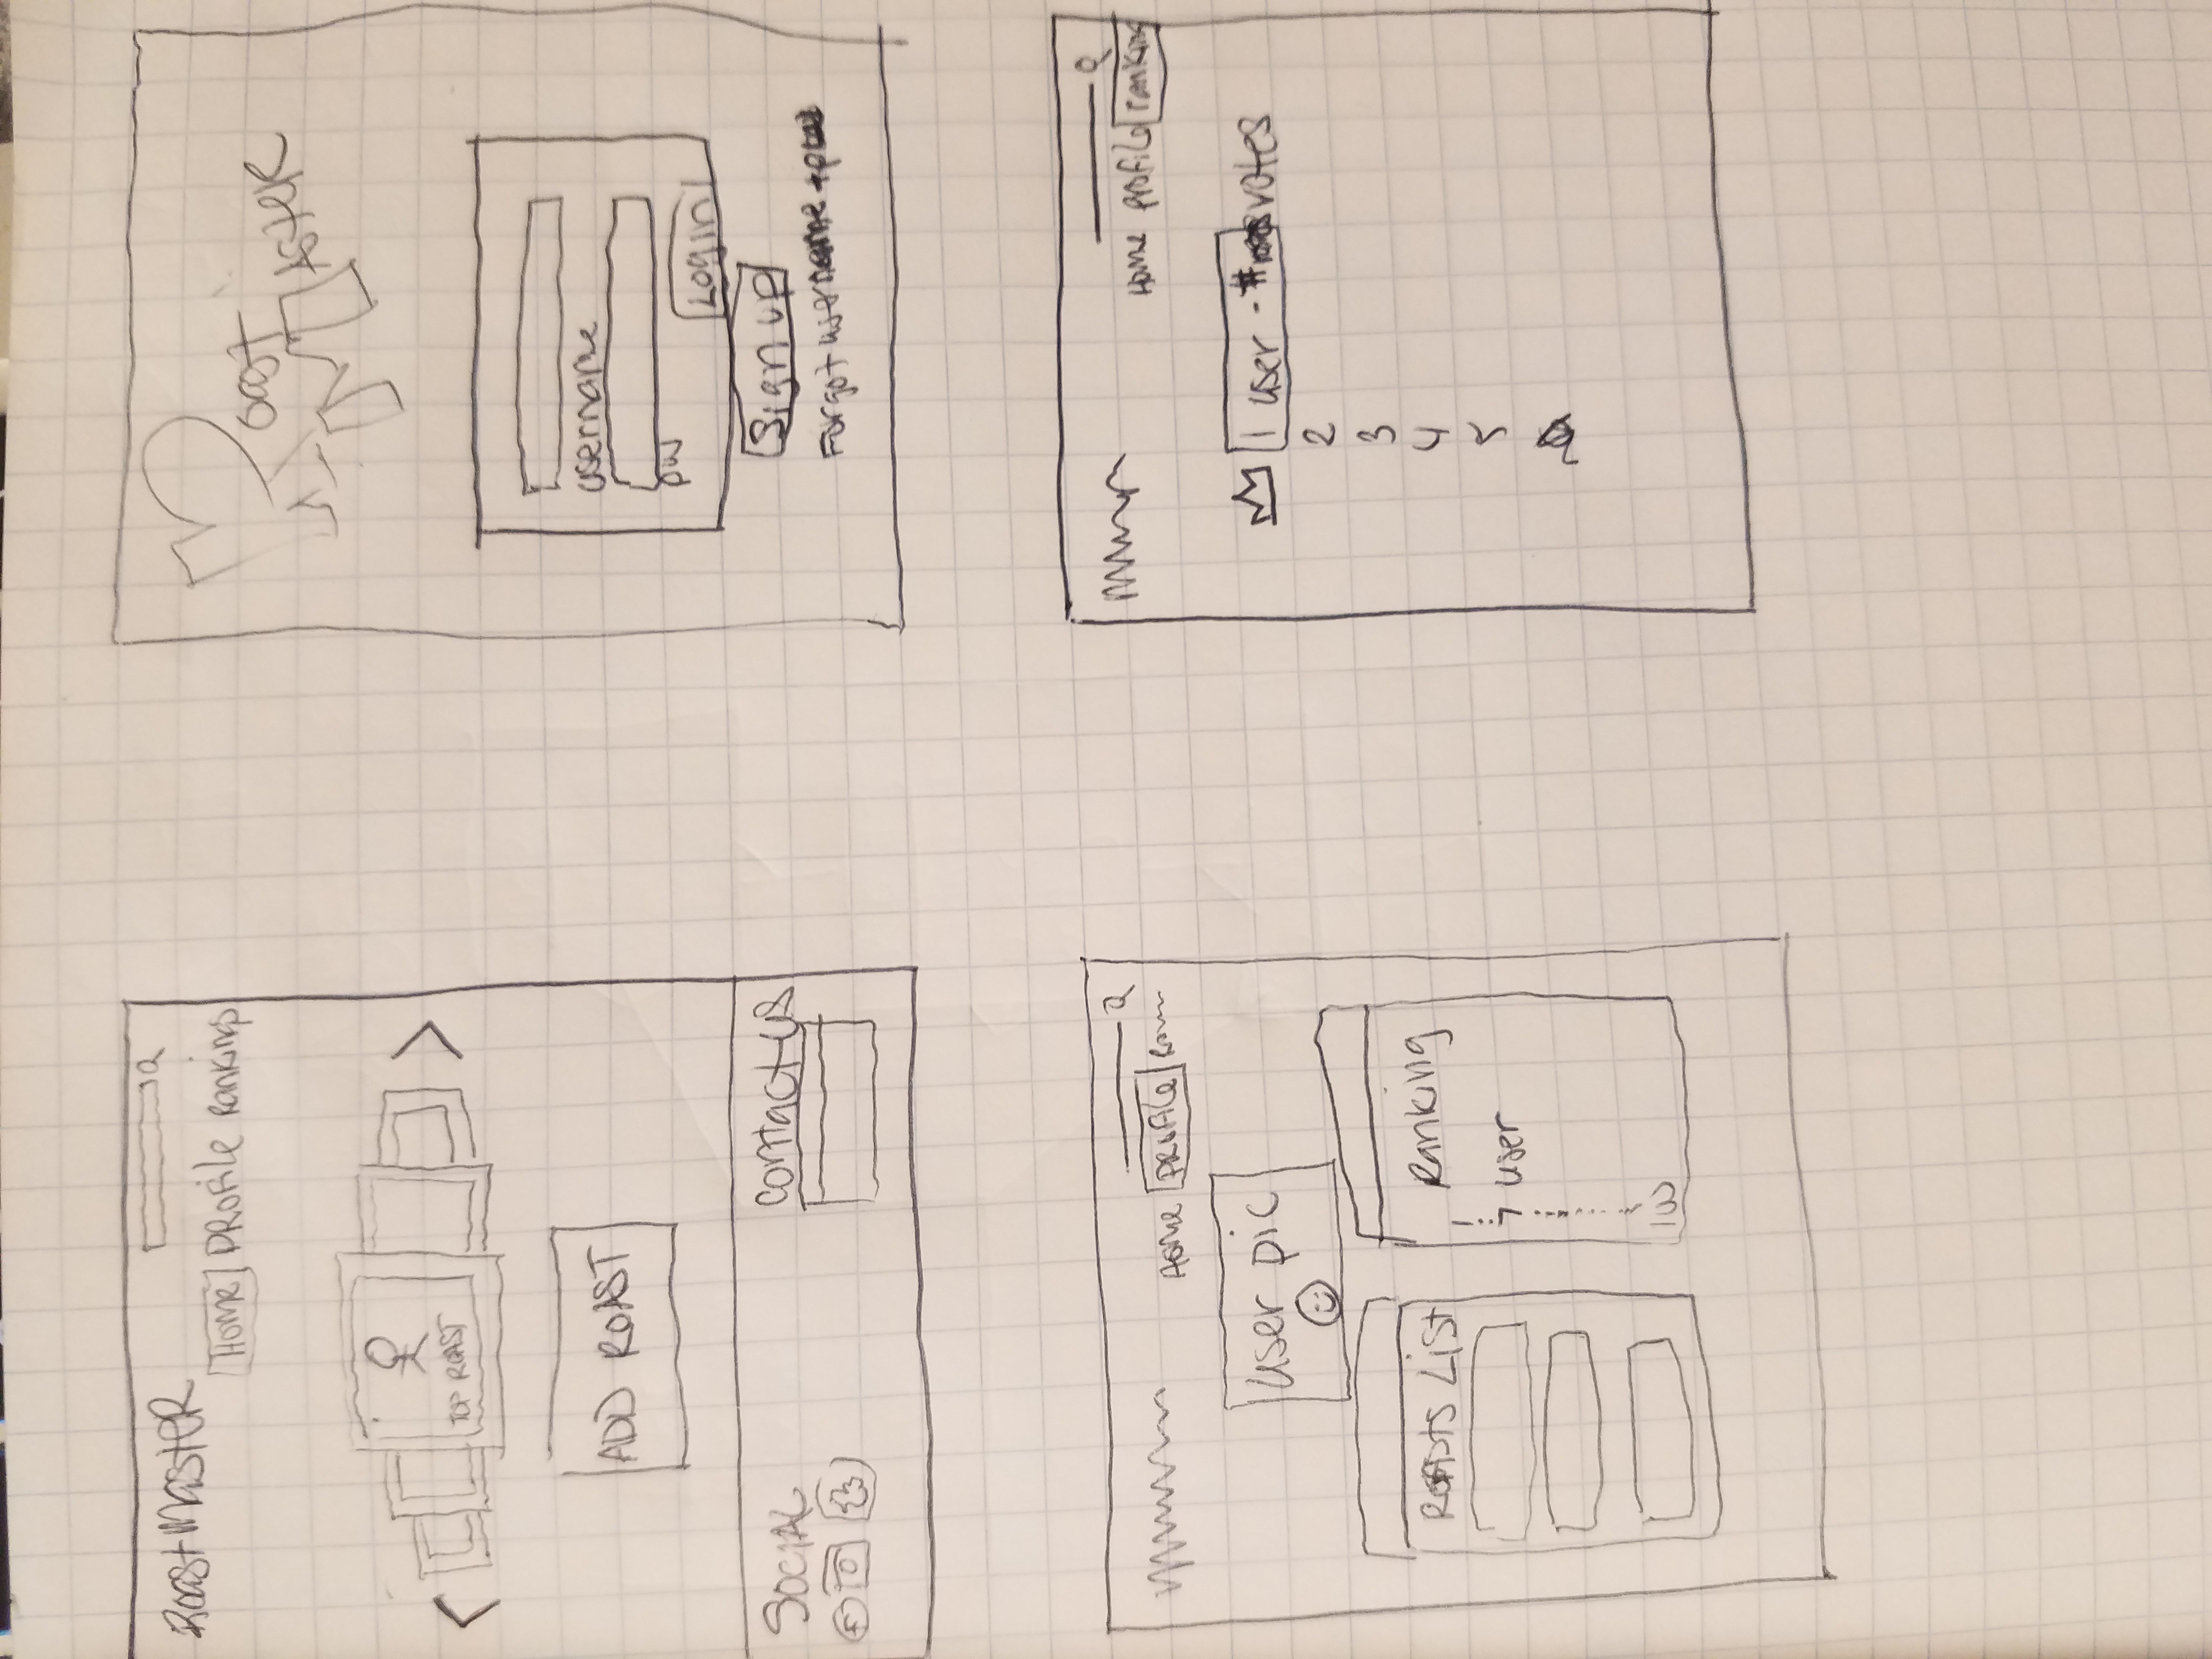 RoastMasteR
Home Profile Rankings
TOP ROAST
ADD ROAST
Social
contact us
Roast
Master
username
pw
Login
Sign up
Forgot username
Home Profile
user pic
Roasts List
Ranking
7 user
Home Profile ranking
1 user - # votes
2
3
4
5